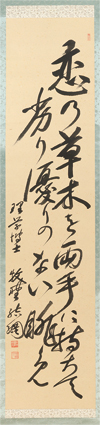 恋乃草木を両手に持ちて
劣り優りのない眺め
理学博士
牧野結網